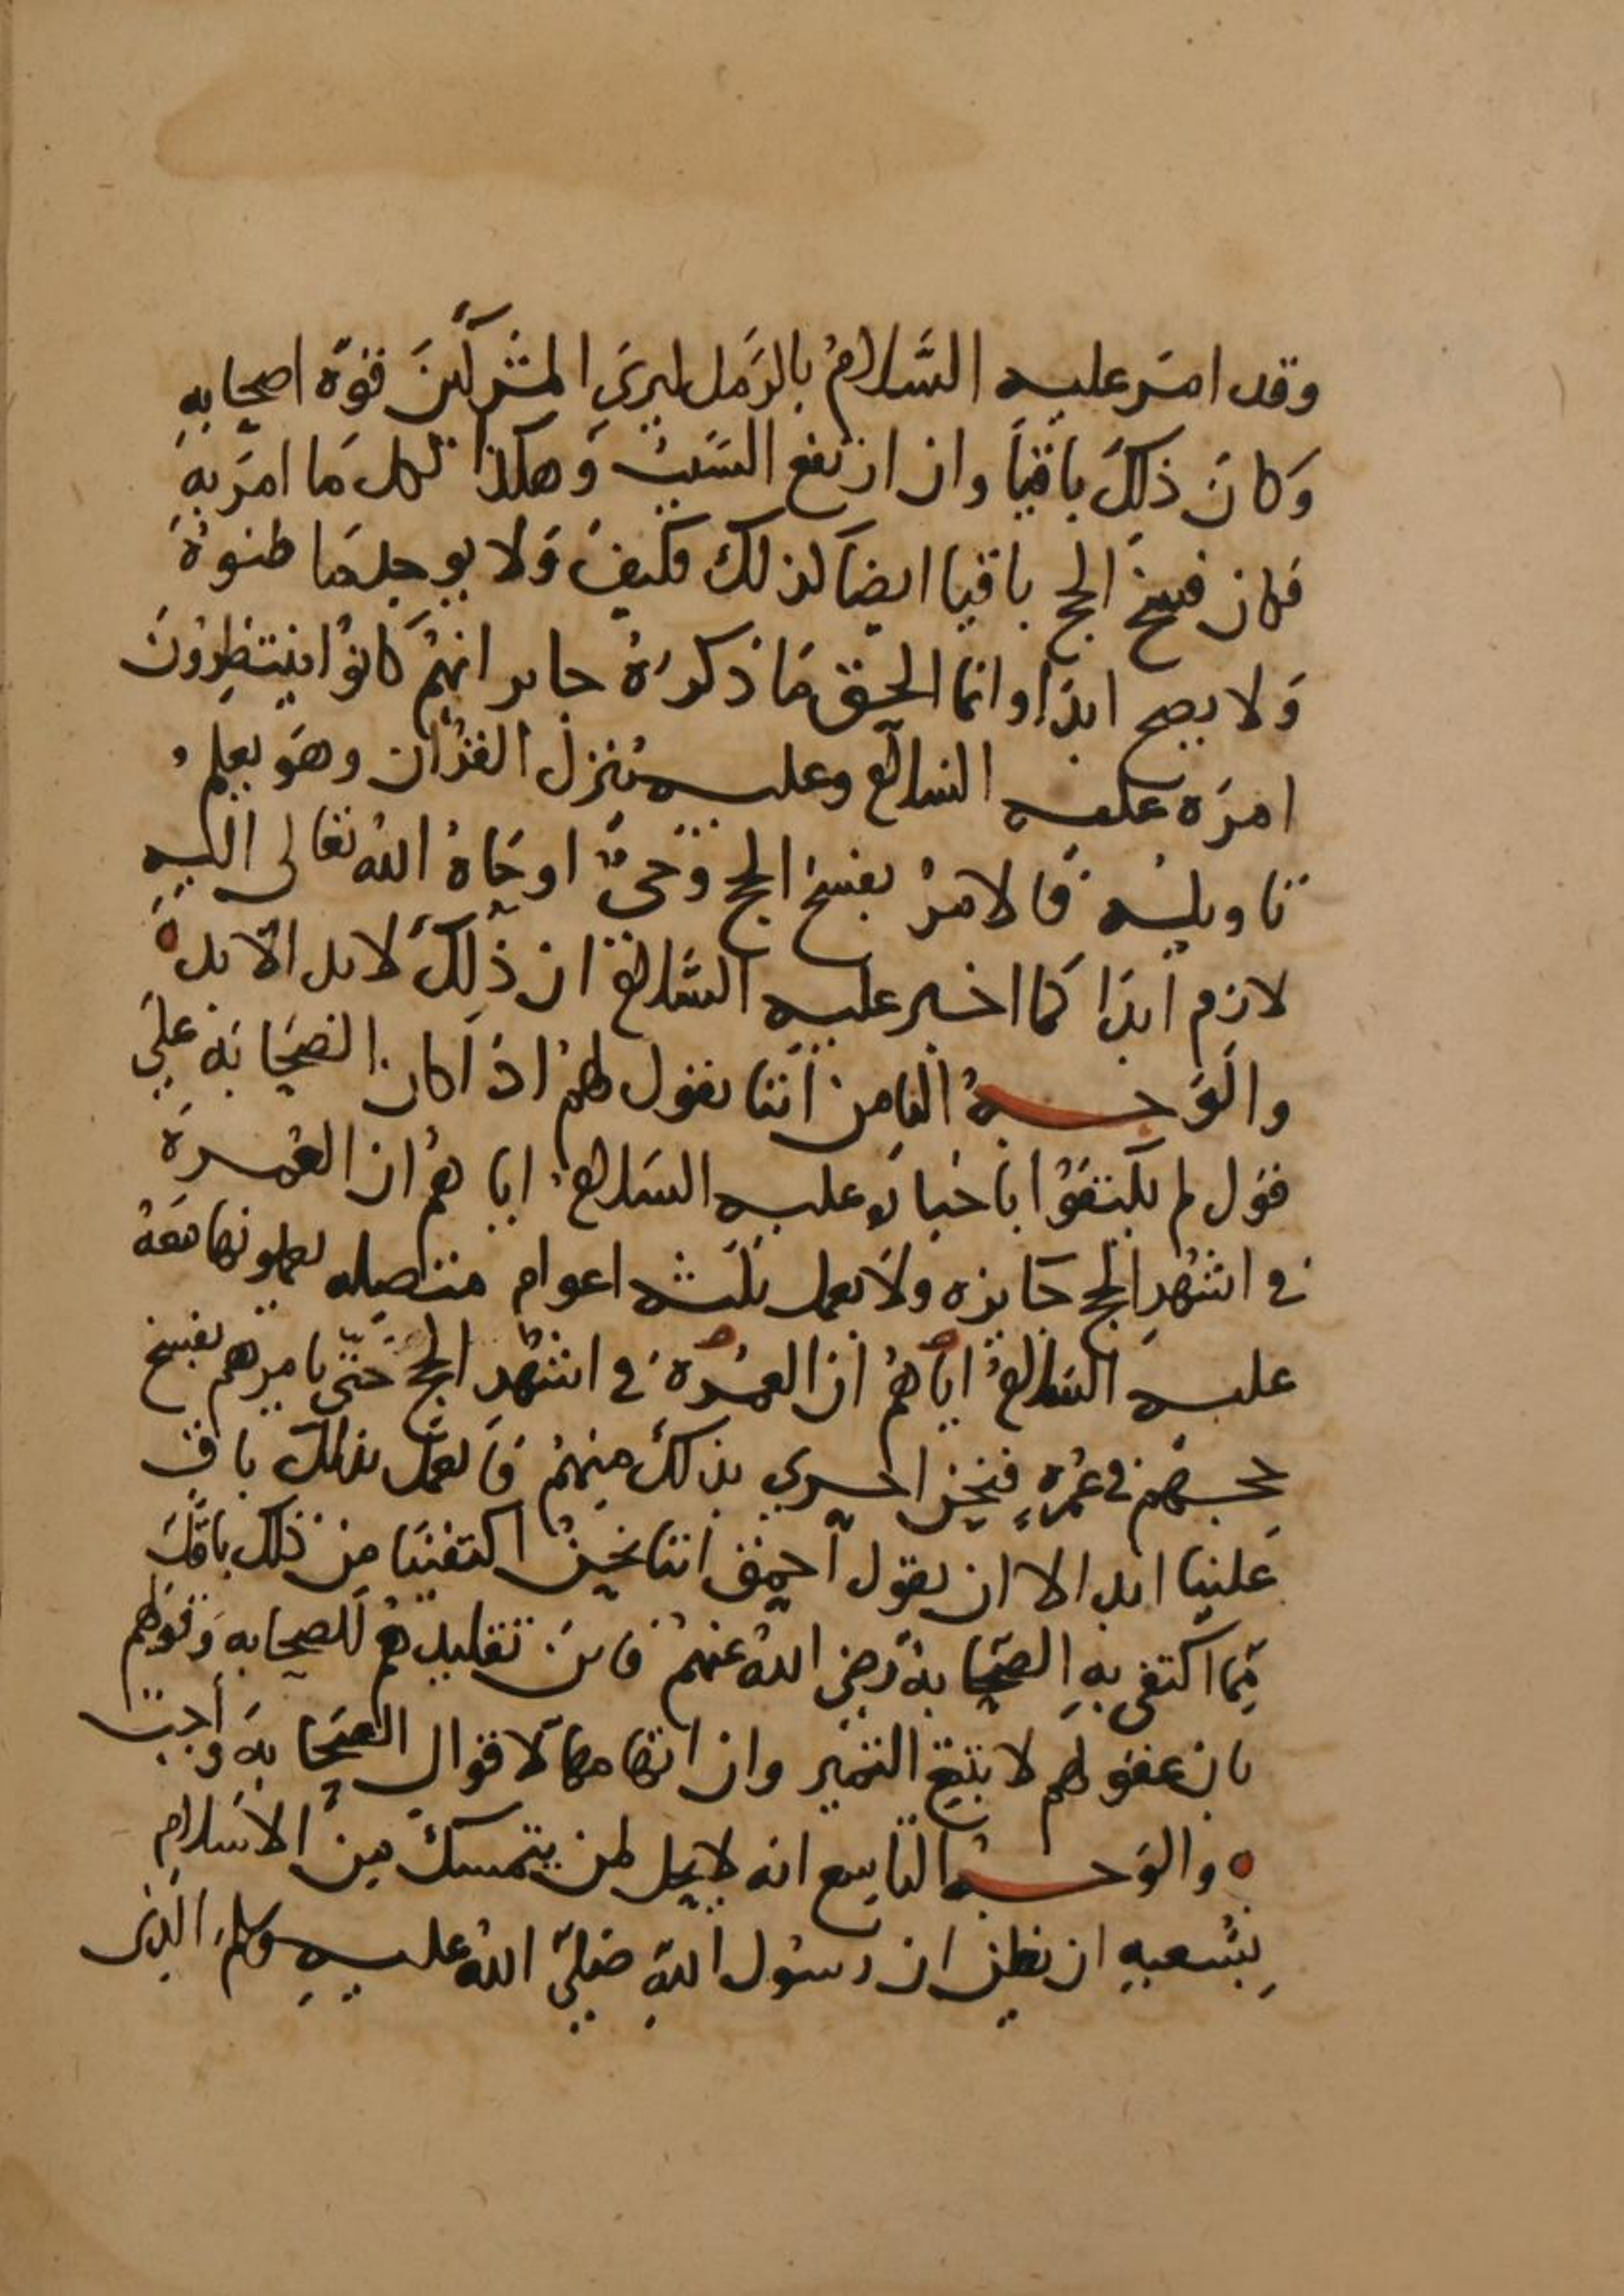 وقد امَر عليه السَّلامُ بالرَمل ليريَ المشركينَ قوّة اصحابهِ
وَكانَ ذلِكَ باقياً وان ارتفع السَّببُ وَهكذا كل مَا امرَ بهِ
فكان فسخ الحج باقيا ايضاً كذلك فكيفَ وَلا يوجد مَا ظنوهُ
وَلا يصح ابدَا وانما الحق مَا ذكرَهُ جابر انهُم كانوُا ينتظِرُونَ
امرَه عليه السلام وعليه يُنزل القرُان وهوَ يعلم
تاويلهُ فالامرُ بفسخ الحج وَحيٌ اوحَاهُ اللهُ تعالى اليهِ
لازم ابدَا كما اخبر عليه السَّلام ان ذلِكَ لابد الابد
والوَجهُ الثامن اننا نقول لهم اذا كان الصَحَابَة علي
قول لم يكتفوُا باخباره عليه السَلام اياهمُ ان العُمرةَ
في اشهُرِ الحج جَايزه ولا بعمل ثلثه اعوام متصله يعملونها مَعَهُ
عليه السَلامُ اياهُمُ ان العمُرة في اشهُر الحج حَتّي يامرَهم بفسخ
حجهم في عُمرهٍ فنحن احري بذلكَ منهُم فَالعمَل بذلك باق
عَلينا ابدا الا ان يقول احمق اننا نحنُ اكتفينَا مِن ذلك باقلّ
مِمّا اكتفي بهِ الصَحَابةُ رَضِي اللهُ عنهُم فاين تقليدهُم للصحابه وَقولهم
بان عقولهم لا تبلغ التمييز وان اتهامها لاقوال الصَحَابة وَاجب
والوَجهُ التاسع انه لا يحل لمن يتمسكُ مِن الاسَلامِ
بِشُعبهِ ان يظن ان رسُول اللهِ صَليّ اللهُ عليهِ وسلم الذي